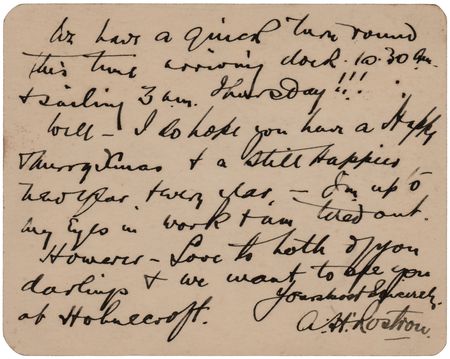 We have a quick turn round
this time arriving dock 10.30 am.
& sailing 3 am. Thursday!!!
Well – I do hope you have a Happy
Merry Xmas & a still happier
new year & every year, – I'm up to
my eyes in work & am tired out.
However – Love to both of you
darlings & we want to see you
at Holmecroft.
Yours most sincerely.
A. H. Rostron.